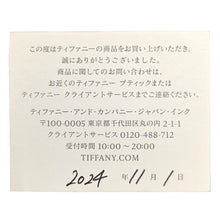 この度はティファニーの商品をお買い上げいただき、
誠にありがとうございました。
商品に関してのお問い合わせは、
お近くのティファニー ブティックまたは
ティファニー クライアントサービスまでご連絡ください。
ティファニー・アンド・カンパニー・ジャパン・インク
〒100-0005 東京都千代田区丸の内 2-1-1
クライアントサービス 0120-488-712
受付時間 10:00 ~ 20:00
TIFFANY.COM
2024 年 11 月 1 日